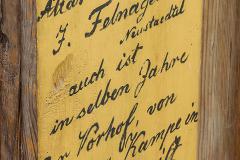 Altar
J. Felnagel
Neustædtel
auch ist
in selben Jahre
Vorhof, von
Kampe in